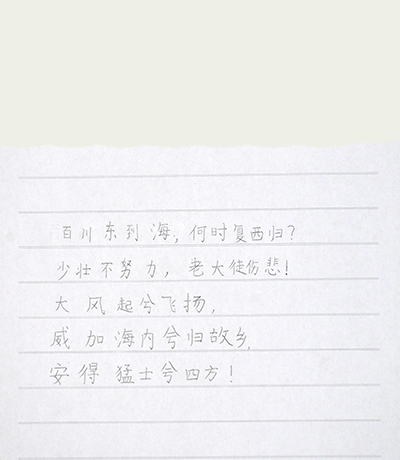 百川东到海，何时复西归？
少壮不努力，老大徒伤悲！
大风起兮飞扬，
威加海内兮归故乡，
安得猛士兮四方！